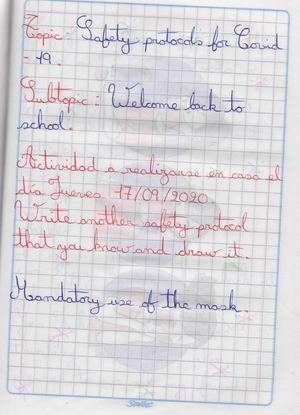 Topic: Safety protocols for Covid
- 19.
Subtopic: Welcome back to
school.
Actividad a realizarse en casa el
día Jueves 17/09/2020
Write another safety protocol
that you know and draw it.
Mandatory use of the mask.